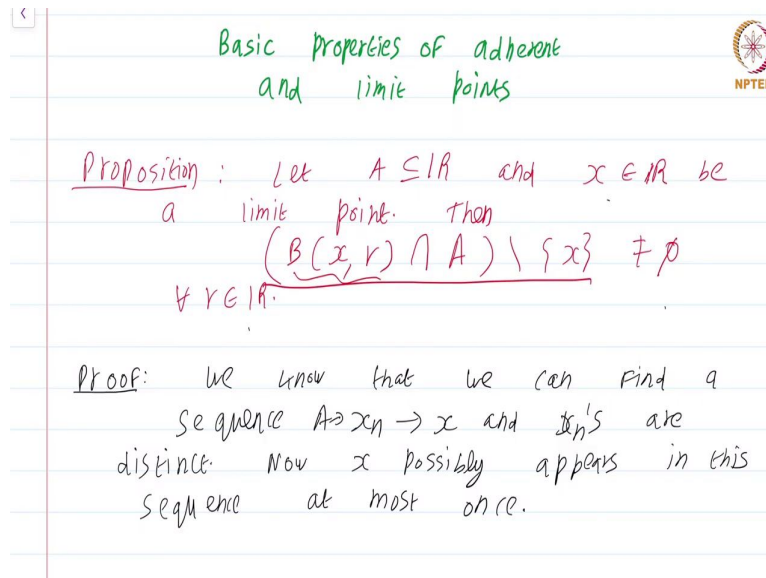 Basic properties of adherent
and limit points
NPTEL
Proposition : Let A ⊆ ℝ and x ∈ ℝ be
a limit point. Then
(B(x, r) ∩ A) \ {x} ≠ ∅
∀ r ∈ ℝ.
Proof: We know that we can find a
sequence A ∋ xn → x and xn's are
distinct. Now x possibly appears in this
sequence at most once.